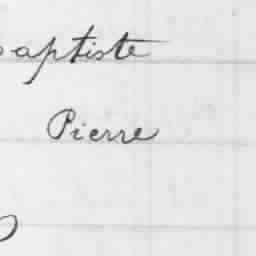 baptiste
Pierre